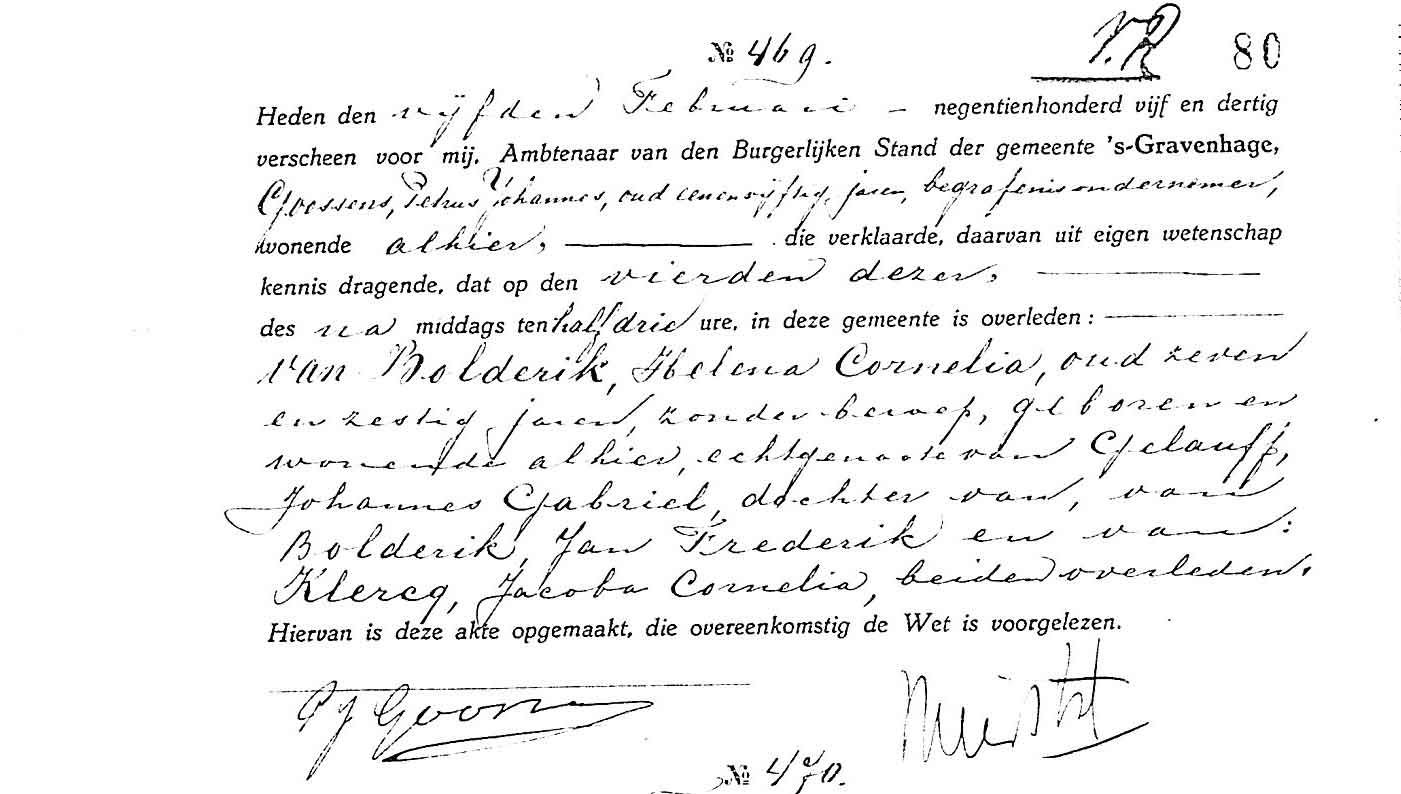 № 469. V.R 80
Heden den vijfden Februari – negentienhonderd vijf en dertig
verscheen voor mij, Ambtenaar van den Burgerlijken Stand der gemeente 's-Gravenhage,
Goossens, Petrus Johannes, oud eenenvijftig jaren, begrafenisondernemer,
wonende alhier, die verklaarde, daarvan uit eigen wetenschap
kennis dragende, dat op den vierden dezer,
des na middags ten half drie ure, in deze gemeente is overleden:
van Bolderik, Helena Cornelia, oud zeven
en zestig jaren, zonder beroep, geboren en
wonende alhier, echtgenoote van Gelauff,
Johannes Gabriel, dochter van, van
Bolderik, Jan Frederik en van:
Klercq, Jacoba Cornelia, beiden overleden.
Hiervan is deze akte opgemaakt, die overeenkomstig de Wet is voorgelezen.
PJ Goossens
№ 470.